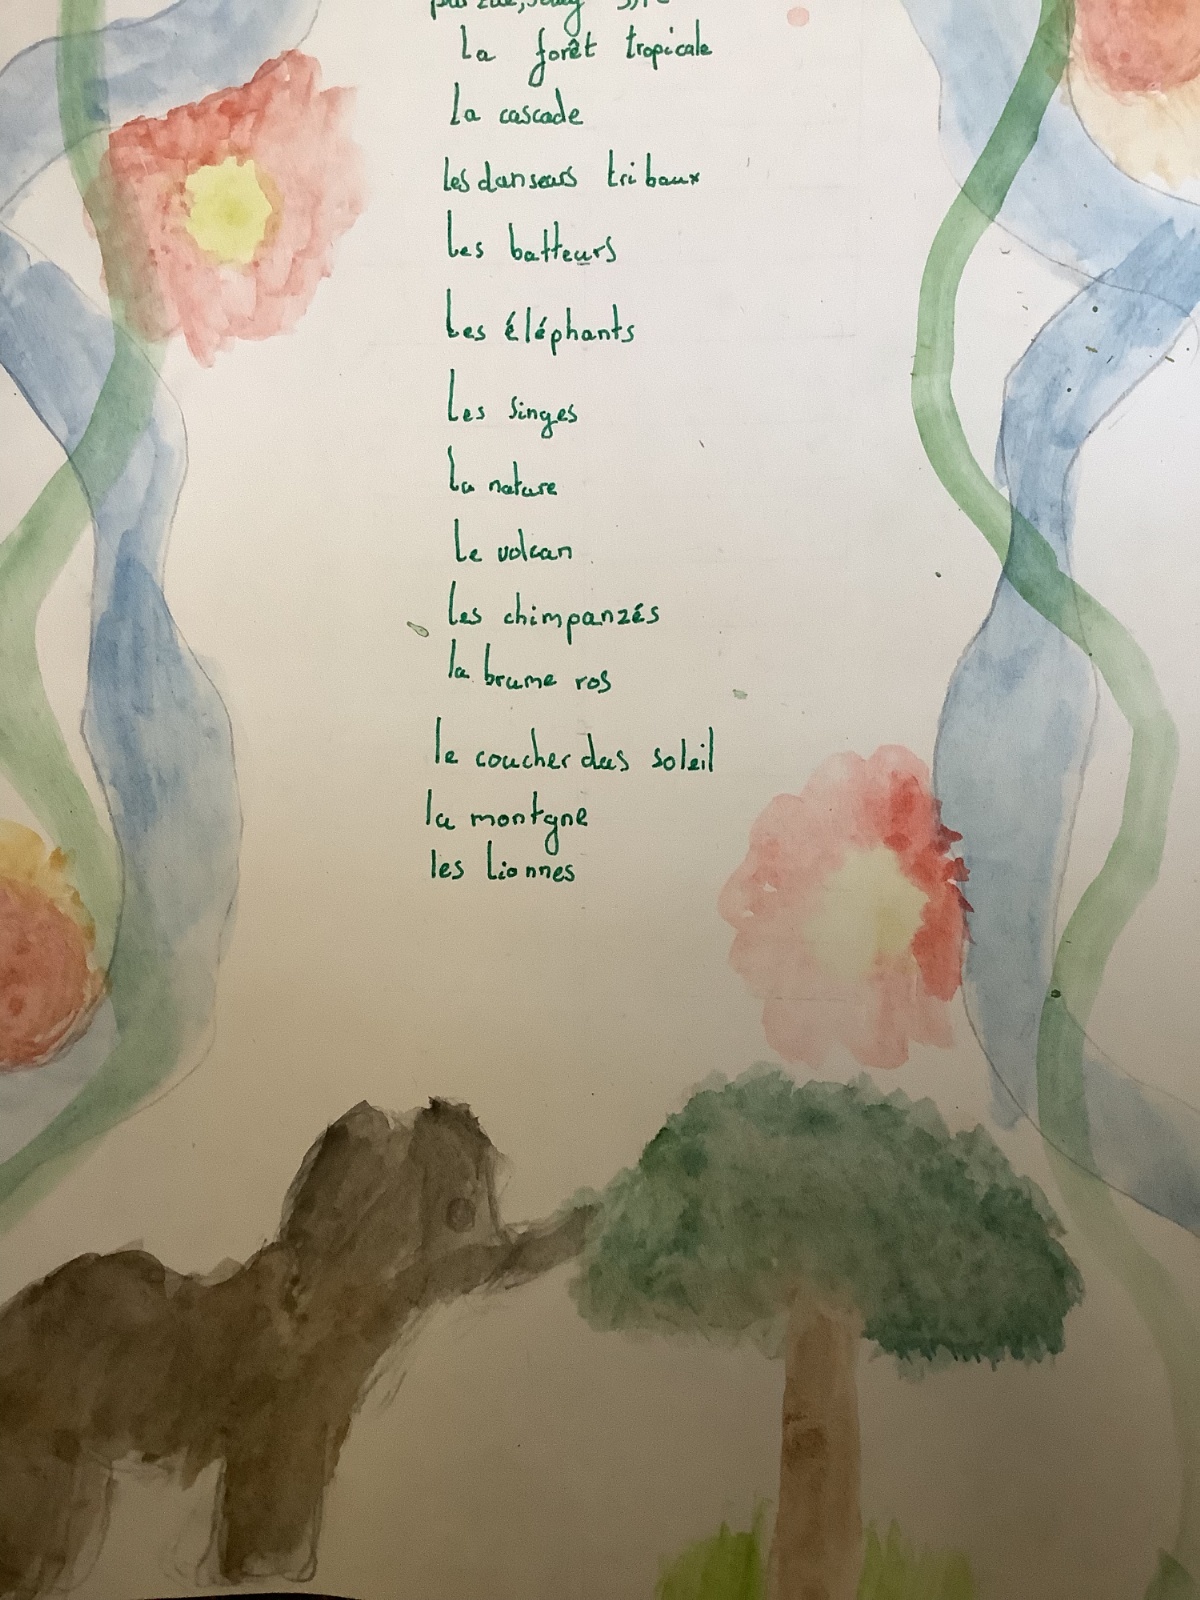 La forêt tropicale
La cascade
les danseurs tribaux
Les batteurs
Les éléphants
Les singes
La nature
Le volcan
Les chimpanzés
la brume ros
le coucher das soleil
la montgne
les Lionnes